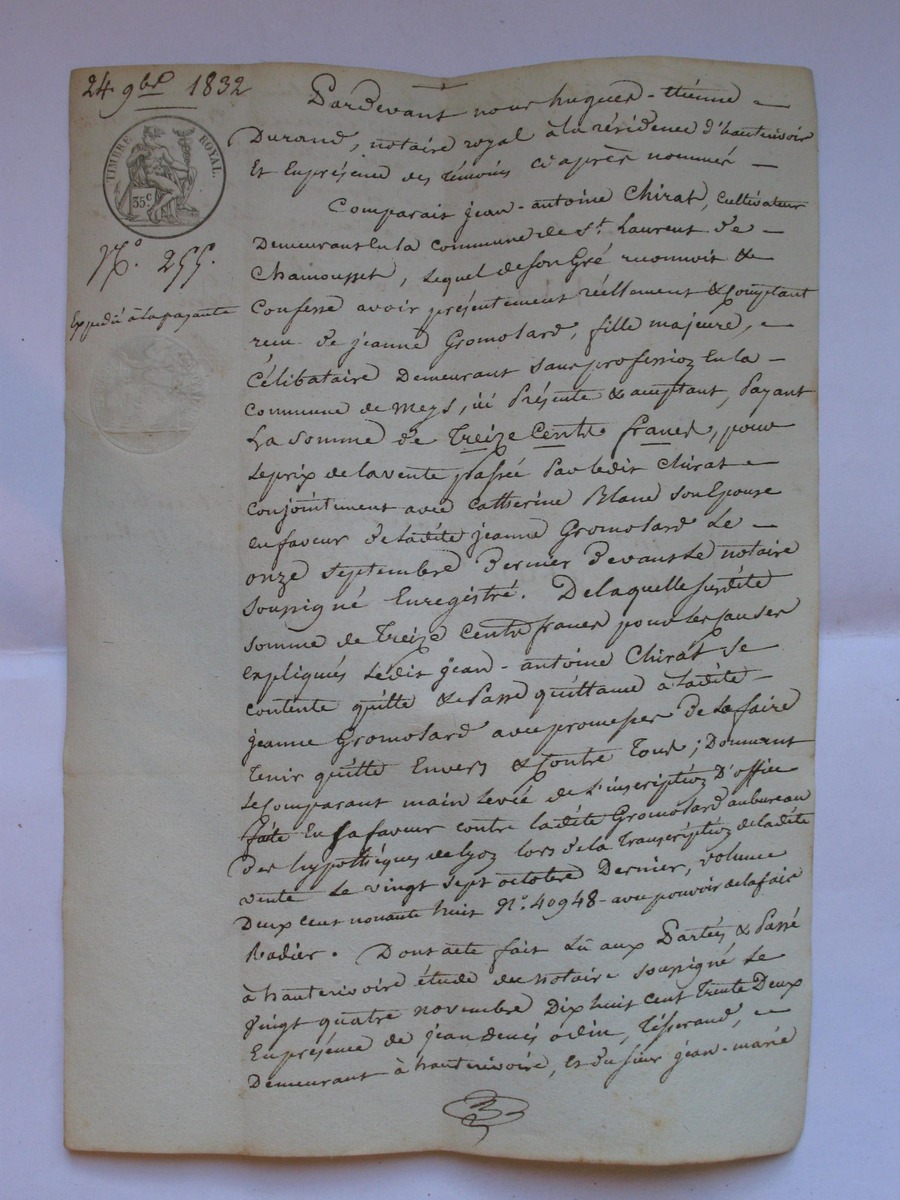 24 9bre 1832
TIMBRE ROYAL.
35c
No. 255.
Expédié à la payante
Pardevant nous hugues-étiénne
Durand, notaire royal à la résidence d'hauterivoir
Et En présence des témoins ci après nommés
Comparait jean-antoine Chirat, Cultivateur
Demeurant En la commune de St. Laurent de
Chamousset, lequel de son Gré reconnoit &
Confesse avoir présentement réellement & Comptant
reçu de jeanne Gromolard, fille majeure,
Célibataire Demeurant sans profession En la
Commune de Meys, ici Présente & acceptant, Payant
La somme de Treize Cents francs, pour
le prix de la vente passée Par ledit Chirat
Conjointement avec Catherine Blanc son Epouse
en faveur de ladite jeanne Gromolard Le
onze septembre Dernier Devant Le notaire
soussigné Enregistré. De laquelle susdite
somme de Treize Cents francs pour les causes
expliqués Ledit jean-antoine Chirat se
contente quitte & Passe quittance à ladite
jeanne Gromolard avec promesses De La faire
Tenir quitte Envers & Contre Tous; Donnant
Le Comparant main Levée de L'inscription D'office
faite En sa faveur contre ladite Gromolard au bureau
Des hypothèques de lyon lors de la Transcription de ladite
vente Le vingt sept octobre Dernier, volume
Deux cent nonante huit No. 40948 avec pouvoir de la faire
Radier. Dont acte fait Lû aux Parties & Passé
à hauterivoire étude du notaire soussigné Le
Vingt quatre novembre Dix huit Cent Trente Deux
En présence de jean Denis odin, Tisserand,
Demeurant à hauterivoire, Et du sieur jean-marie